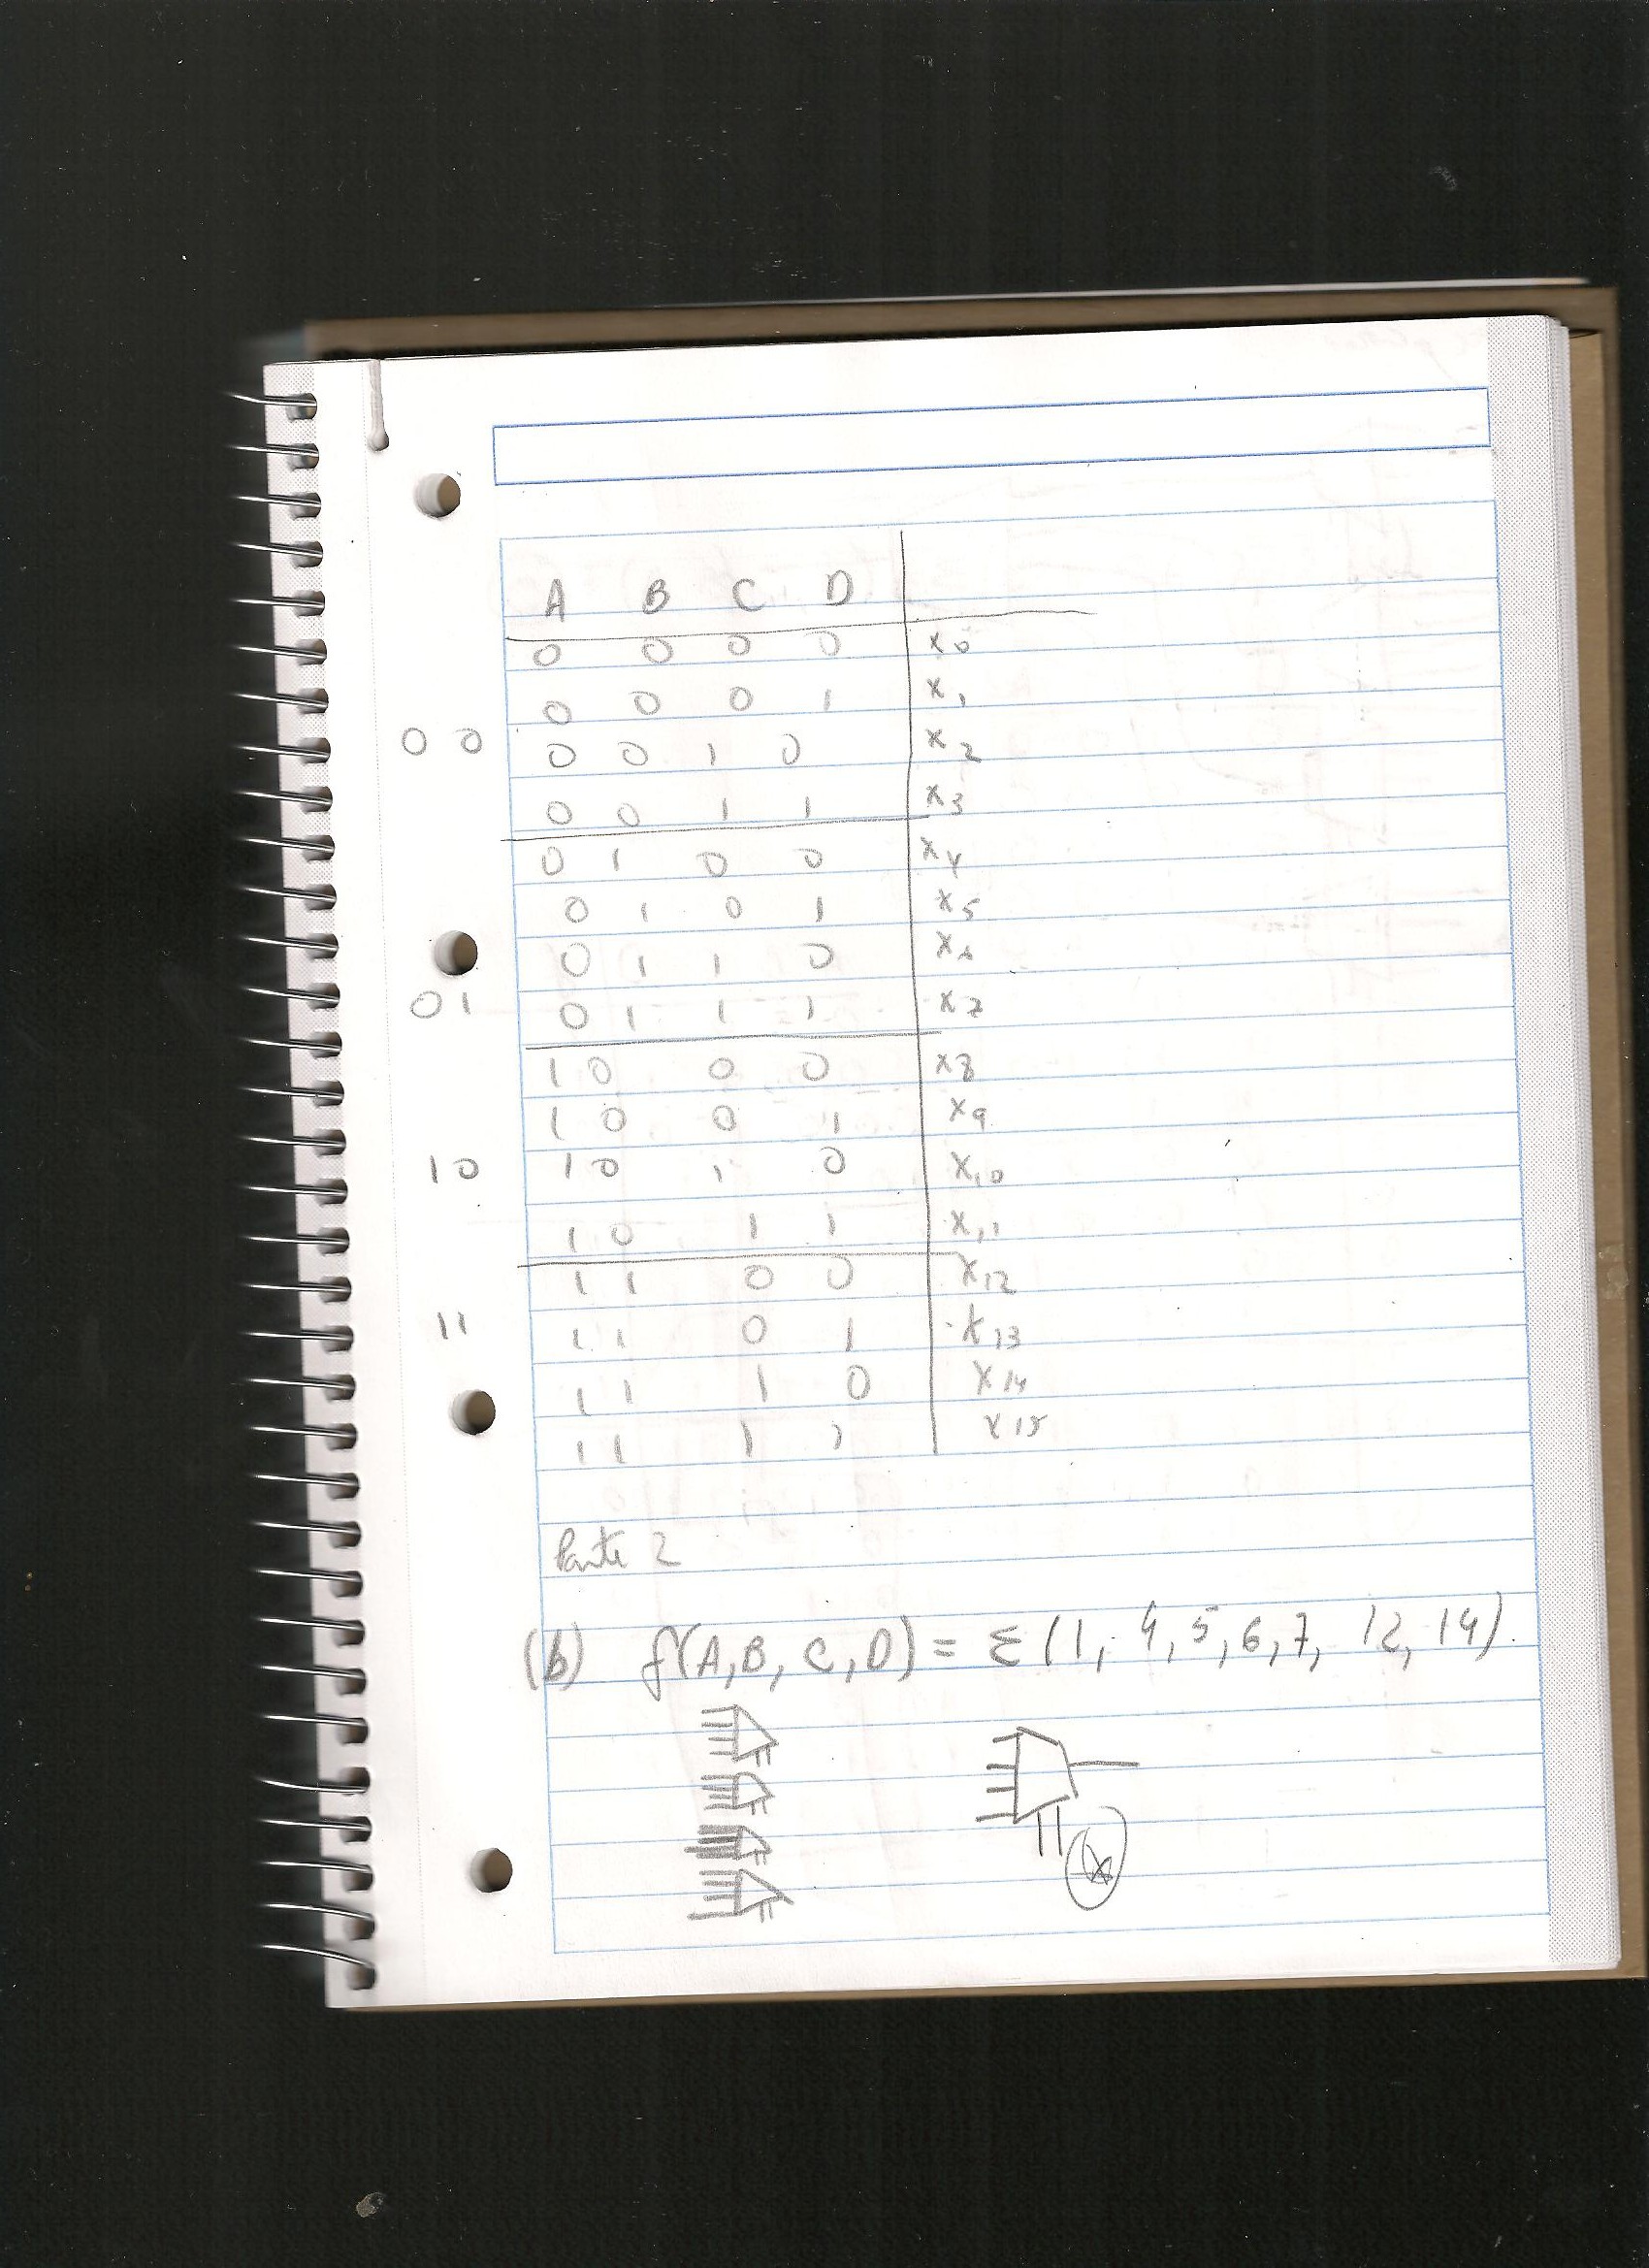 A B C D
0 0 0 0 x0
0 0 0 1 x1
00 0 0 1 0 x2
0 0 1 1 x3
0 1 0 0 x4
0 1 0 1 x5
0 1 1 0 x6
01 0 1 1 1 x7
1 0 0 0 x8
1 0 0 1 x9
10 1 0 1 0 x10
1 0 1 1 x11
1 1 0 0 x12
11 1 1 0 1 x13
1 1 1 0 x14
1 1 1 1 x15
Parte 2
(b) f(A,B,C,D) = Σ (1, 4,5,6,7, 12, 14).